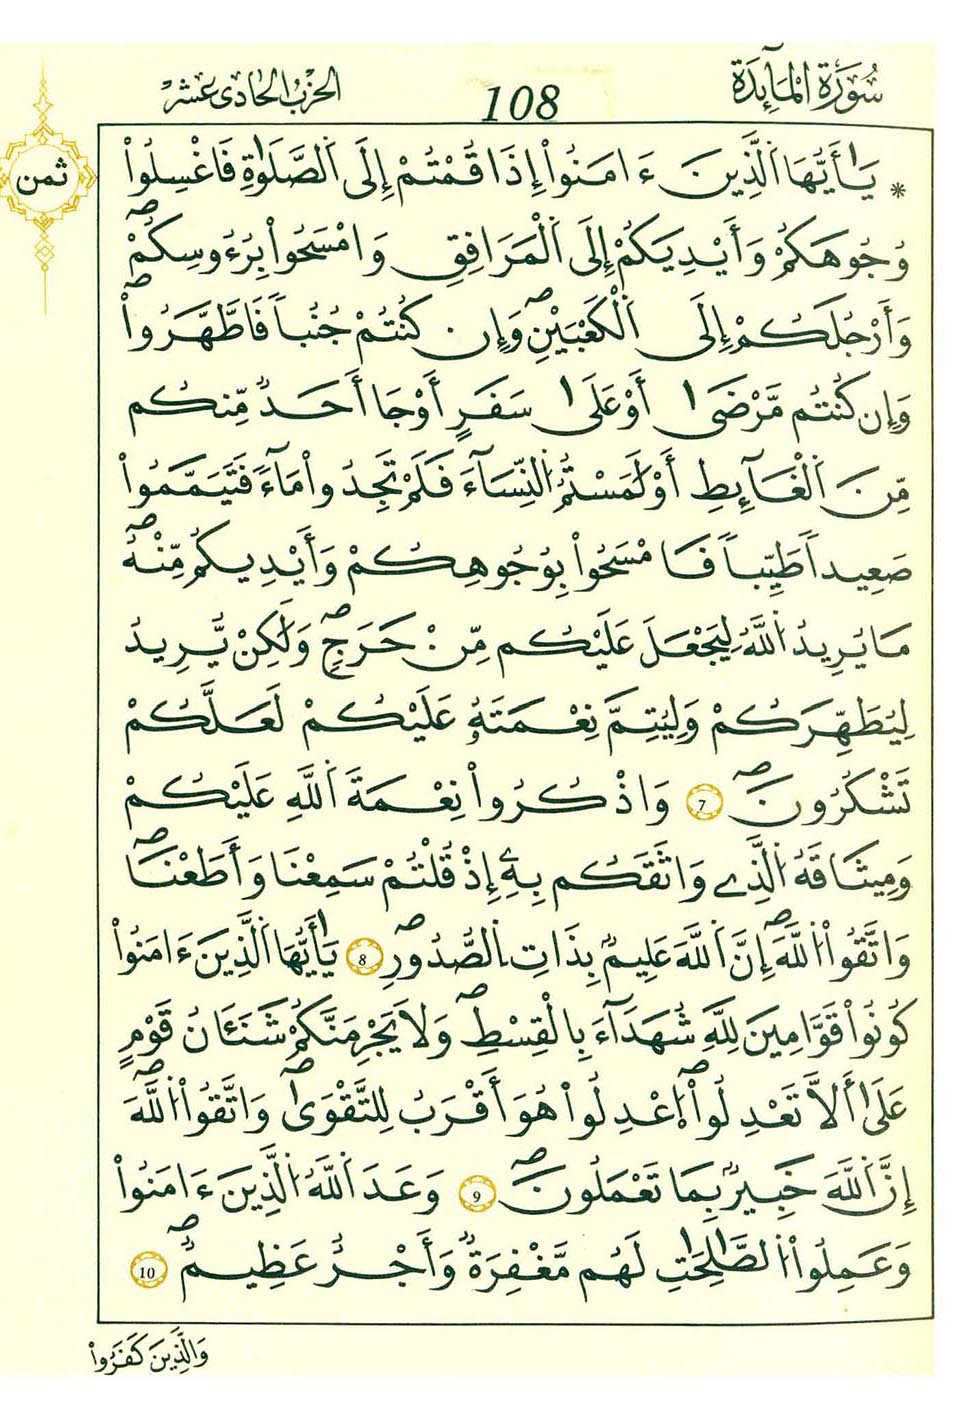 سُورَةُ الْمَآئِدَةِ
108
الحزب الحادي عشر
ثمن
* يَٰأَيُّهَا اَلذِينَ ءَامَنُواْ إِذَا قُمْتُمْ إِلَى اَلصَّلَوٰةِ فَاغْسِلُواْ
وُجُوهَكُمْ وَأَيْدِيَكُمْ إِلَى اَلْمَرَافِقِ وَامْسَحُواْ بِرُءُوسِكُمْ
وَأَرْجُلَكُمْ إِلَى اَلْكَعْبَيْنِ وَإِن كُنتُمْ جُنُباً فَاطَّهَّرُواْ
وَإِن كُنتُم مَّرْضَىٰ أَوْ عَلَىٰ سَفَرٍ أَوْ جَا أَحَدٌ مِّنكُم
مِّنَ اَلْغَآئِطِ أَوْ لَٰمَسْتُمُ اُلنِّسَآءَ فَلَمْ تَجِدُواْ مَآءً فَتَيَمَّمُواْ
صَعِيداً طَيِّباً فَامْسَحُواْ بِوُجُوهِكُمْ وَأَيْدِيكُم مِّنْهُ
مَا يُرِيدُ اُللَّهُ لِيَجْعَلَ عَلَيْكُم مِّنْ حَرَجٍ وَلَٰكِنْ يُّرِيدُ
لِيُطَهِّرَكُمْ وَلِيُتِمَّ نِعْمَتَهُۥ عَلَيْكُمْ لَعَلَّكُمْ
تَشْكُرُونَ 7 وَاذْكُرُواْ نِعْمَةَ اَللَّهِ عَلَيْكُمْ
وَمِيثَاقَهُ اُلذِے وَاثَقَكُم بِهِۦٓ إِذْ قُلْتُمْ سَمِعْنَا وَأَطَعْنَا
وَاتَّقُواْ اُللَّهَ إِنَّ اَللَّهَ عَلِيمٌ بِذَاتِ اِلصُّدُورِ 8 يَٰأَيُّهَا اَلذِينَ ءَامَنُواْ
كُونُواْ قَوَّامِينَ لِلهِ شُهَدَآءَ بِالْقِسْطِ وَلَا يَجْرِمَنَّكُمْ شَنَـَٔانُ قَوْمٍ
عَلَىٰ أَلَّا تَعْدِلُواْ اُ۪عْدِلُواْ هُوَ أَقْرَبُ لِلتَّقْوَىٰ وَاتَّقُواْ اُللَّهَ
إِنَّ اَللَّهَ خَبِيرٌ بِمَا تَعْمَلُونَ 9 وَعَدَ اَللَّهُ اُلذِينَ ءَامَنُواْ
وَعَمِلُواْ اُلصَّٰلِحَٰتِ لَهُم مَّغْفِرَةٌ وَأَجْرٌ عَظِيمٌ 10
وَالذِينَ كَفَرُواْ